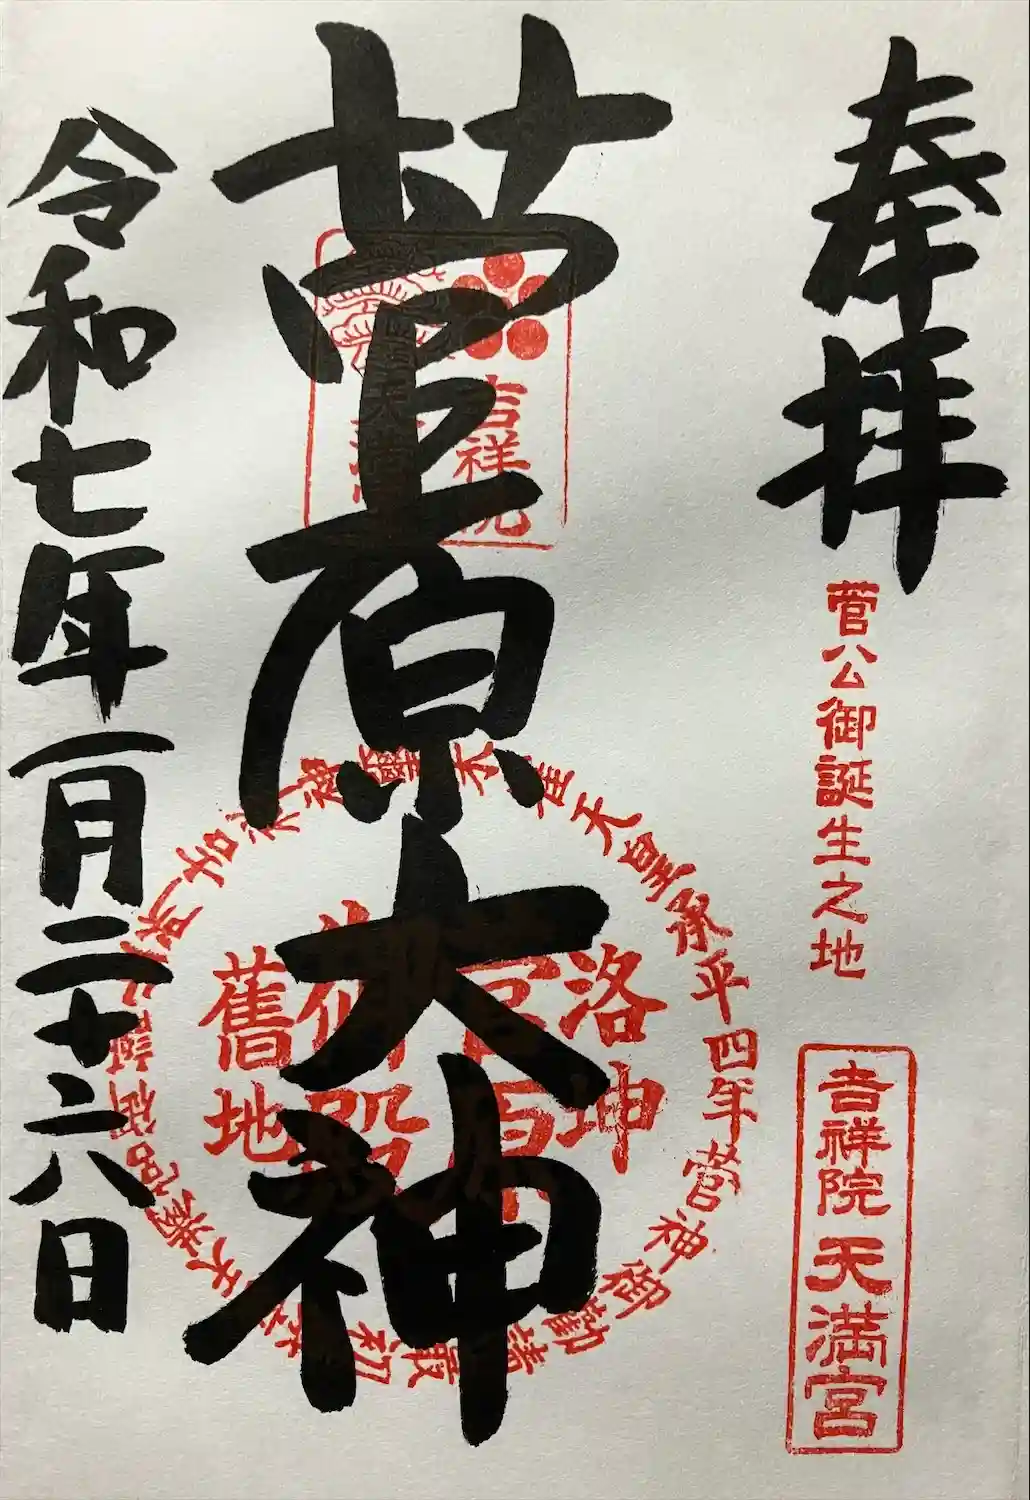 奉拝
菅公御誕生之地
吉祥院天満宮
菅原大神
吉祥院
洛坤
舊地
天皇承平四年菅神御勸請最初
令和七年一月二十六日